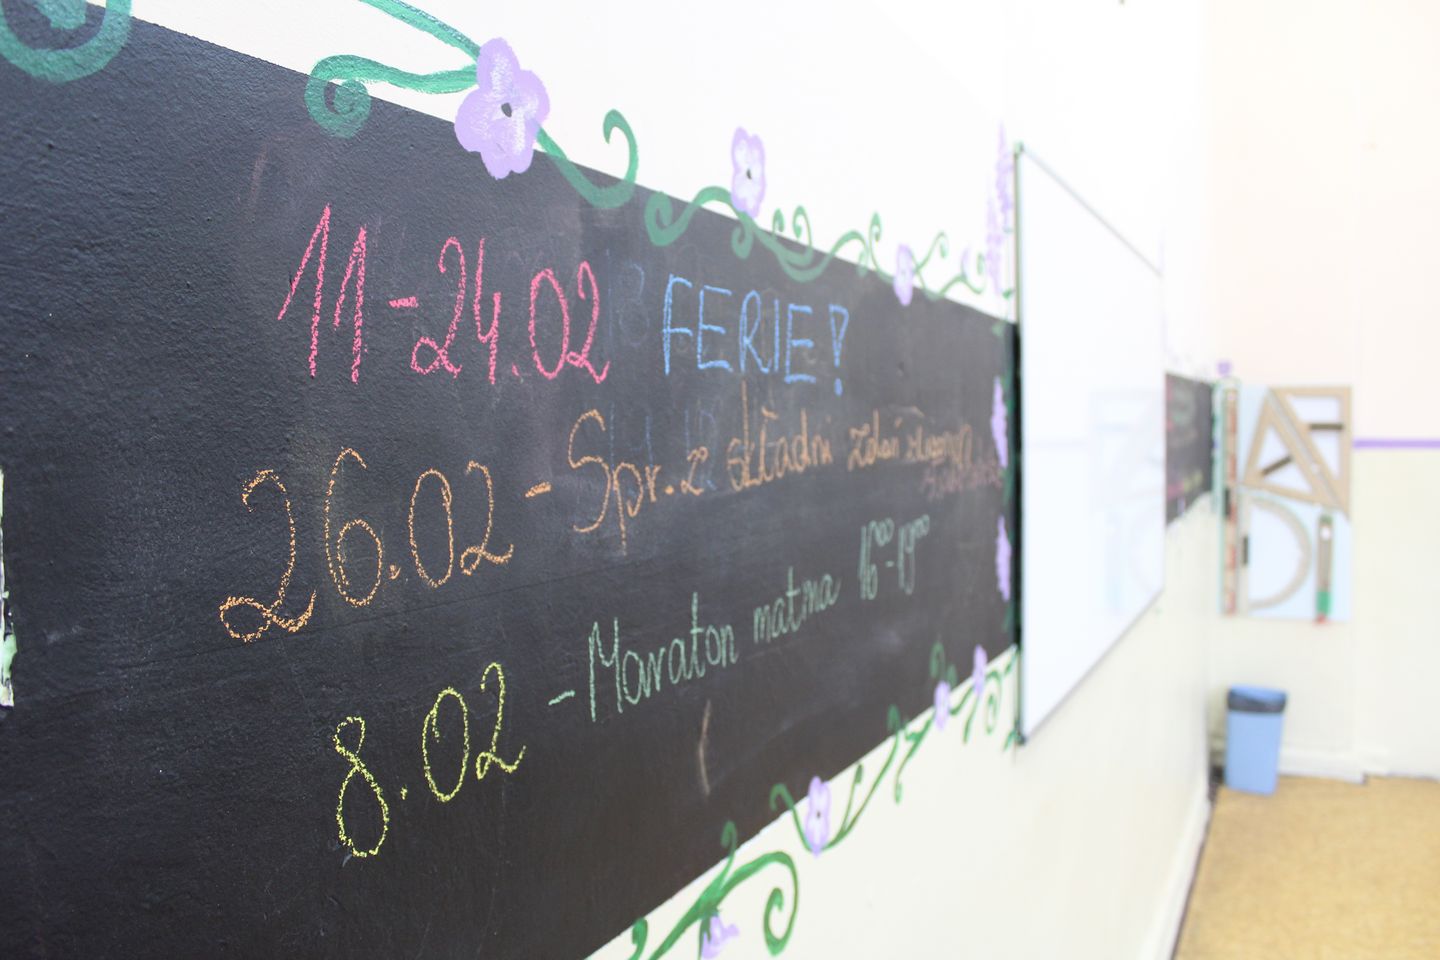 11-24.02 FERIE!
26.02 - Spr. z składni zdań złożonych
8.02 - Maraton matma 16⁰⁰-19⁰⁰